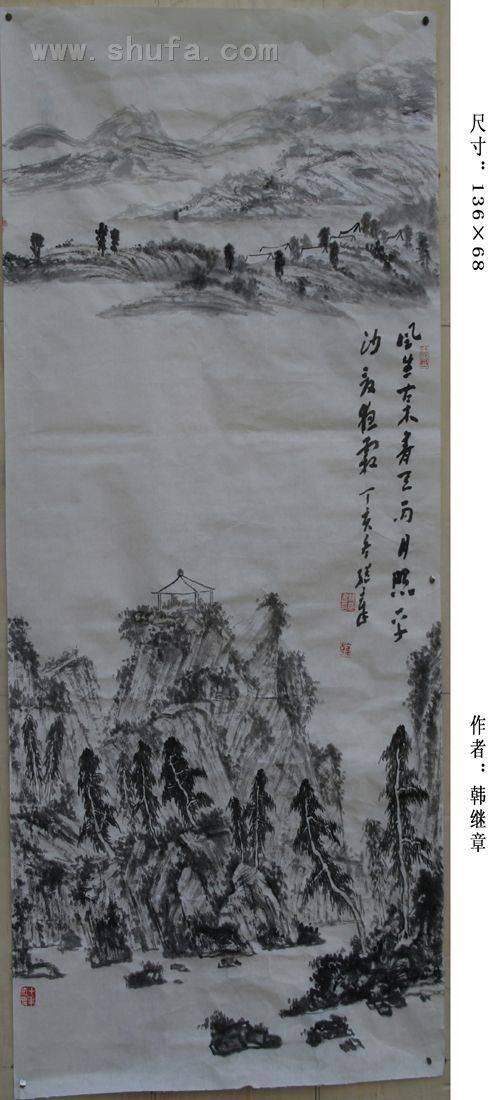 www.shufa.com
风生古木青天雨月照平
沙夏夜霜 丁亥冬继章
尺寸：136×68
作者：韩继章